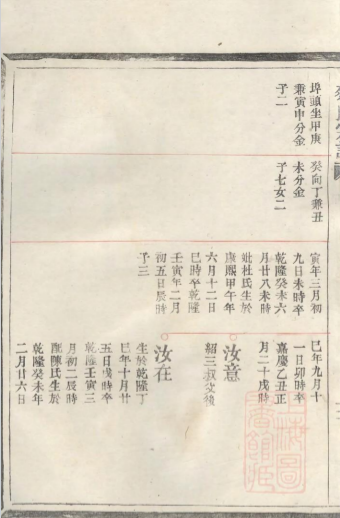 埠頭坐甲庚
兼寅申分金
子二
癸向丁兼丑
未分金
子七女二
寅年三月初
九日未時卒
乾隆癸未六
月廿八未時
妣杜氏生於
康熙甲午年
六月十二日
巳時卒乾隆
壬寅年二月
初五日辰時
子三
巳年九月十
一日卯時卒
嘉慶乙丑正
月二十戌時
汝意
紹三叔父後
汝在
生於乾隆丁
巳年十月廿
五日戌時卒
乾隆壬寅三
月初二辰時
配陳氏生於
乾隆癸未年
二月廿六日